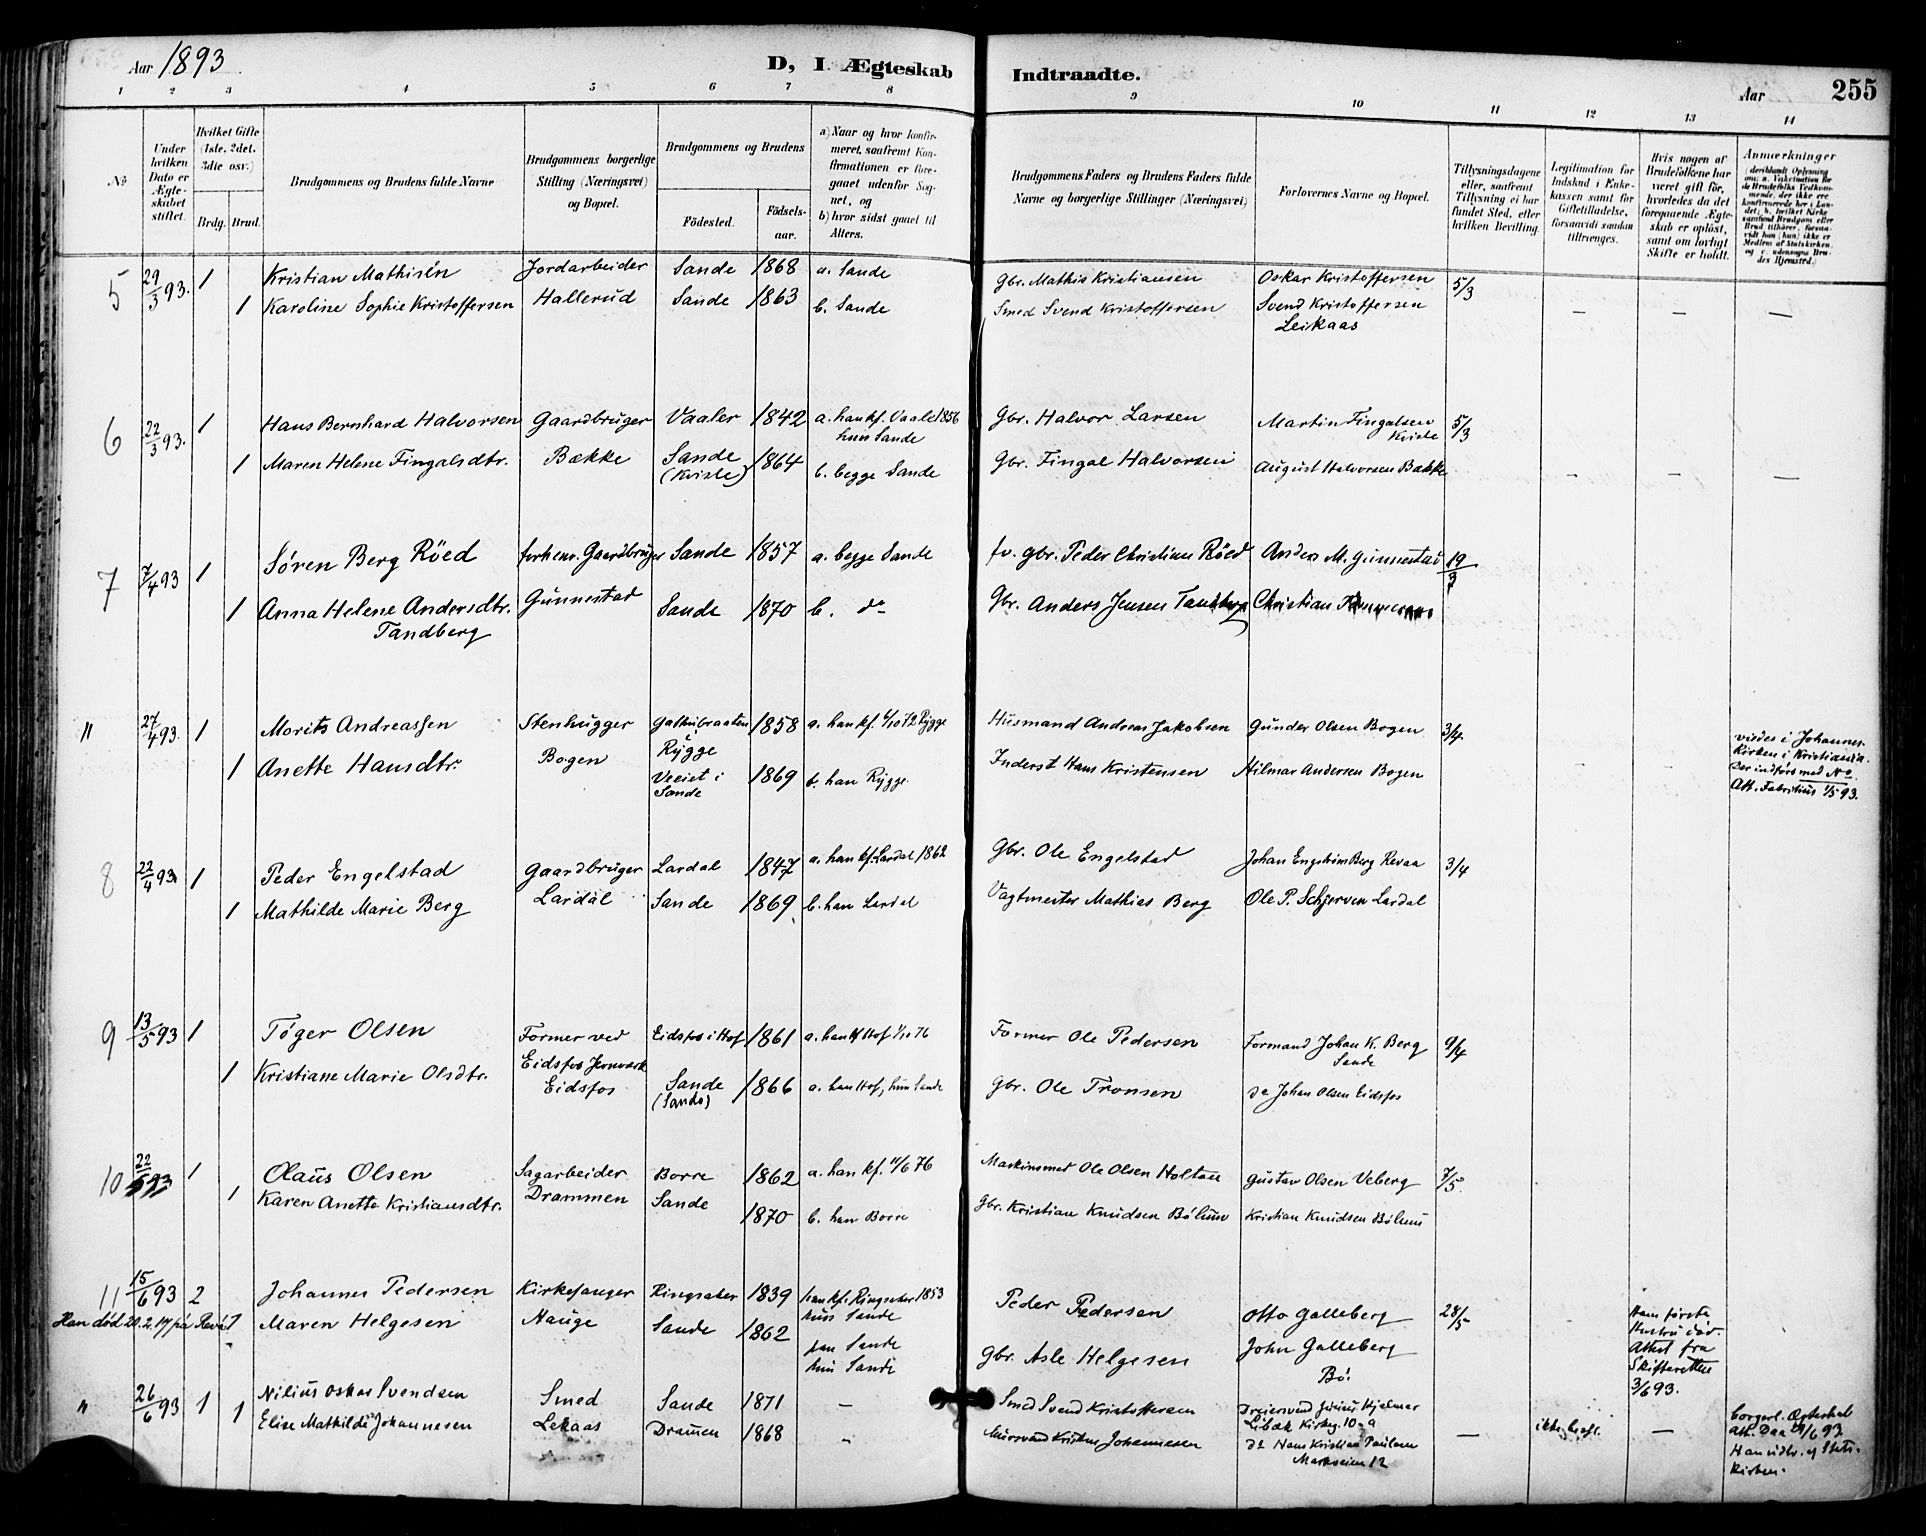 Aar 1893.
D, I Ægteskab Indtraadte.
Aar
255
1 2 3 4 5 6 7 8 9 10 11 12 13 14
No
Under hvilken Dato er Ægteskabet stiftet.
Hvilket Gifte (1ste, 2det, 3die osv.)
Brdg. Brud.
Brudgommens og Brudens fulde Navne
Brudgommens borgerlige Stilling (Næringsvei) og Bopæl.
Brudgommens og Brudens
Födested.
Födselsaar.
a) Naar og hvor konfirmeret, saafremt Konfirmationen er foregaaet udenfor Sognet, og
b) hvor sidst gaaet til Alters.
Brudgommens Faders og Brudens Faders fulde Navne og borgerlige Stillinger (Næringsvei)
Forlovernes Navne og Bopæl.
Tillysningsdagene eller, saafremt Tillysning ei har fundet Sted, efter hvilken Bevilling.
Legitimation for Indskud i Enkekassen samt for Giftetilladelse, forsaavidt saadan tiltrænges.
Hvis nogen af Brudefolkene har været gift för, hvorledes da det foregaaende Ægteskab er oplöst, samt om lovligt Skifte er holdt.
Anmærkninger
5 29/3 93. 1 Kristian Mathisen Jordarbeider Sande 1868 a. Sande Gbr. Mathis Kristiansen Oskar Kristoffersen 5/3
1 Karoline Sophie Kristoffersen Hallerud Sande 1863 b. Sande Smed Svend Kristoffersen Svend Kristoffersen — — —
Leikaas
6 22/3 93. 1 Hans Bernhard Halvorsen Gaardbruger Vaaler 1842 a. han kf. Vaale 1856 Gbr. Halvor Larsen Martin Fingalsen 5/3
hun Sande Kviste
1 Maren Helene Fingalsdtr. Bække Sande 1864 b. begge Sande Gbr. Fingal Halvorsen August Halvorsen Bække — — —
(Kviste)
7 7/4 93 1 Søren Berg Röed forhenv. Gaardbruger Sande 1857 a. begge Sande fv. gbr. Peder Christian Röed Anders M. Gunnestad 19/3
1 Anna Helene Andersdtr. Gunnestad Sande 1870 b. do Gbr. Anders Jensen Tandberg Christian
Tandberg
" 27/4 93. 1 Morits Andreassen Stenhugger 1858 a. han kf. 6/10 72 Rygge Husmand Andreas Jakobsen Gunder Olsen Bogen 3/4.
i Rygge
1 Anette Hansdtr. Bogen Veeiet i 1869 b. han Rygge. Inderst Hans Kristensen Hilmar Andersen Bogen
Sande
viedes i Johannes-
kirken i Kristiania.
Der indførs med No
Att. Fabritius 1/5 93.
8 22/4 93. 1 Peder Engelstad Gaardbruger Lardal 1847 a. han kf. Lardal 1862 Gbr. Ole Engelstad Johan Engström Berg Revaa 3/4
1 Mathilde Marie Berg Lardal Sande 1869 b. han Lardal Vagtmester Mathias Berg Ole P. Schjerven Lardal
9 13/5 93 1 Töger Olsen Former ved Eidsfos i Hof 1861 a. han kf Hof 1/10 76 Former Ole Pedersen Formand Johan K. Berg 9/4
Eidsfos Jernværk Sande
1 Kristiane Marie Olsdtr. Eidsfos Sande 1866 a. han Hof, hun Sande Gbr. Ole Tronsen do Johan Olsen Eidsfos
(Sande)
10 22/5 93 1 Olaus Olsen Sagarbeider Borre 1862 a. han kf. 11/6 76 Maskinsmed Ole Olsen Holtan Gustav Olsen Veberg 7/5.
1 Karen Anette Kristiansdtr. Drammen Sande 1870 b. han Borre Gbr. Kristian Knudsen Bölum Kristian Knudsen Bölum
11 15/6 93 2 Johannes Pedersen Kirkesanger Ringsaker 1839 han kf. Ringsaker 1853 Peder Pedersen Otto Galleberg 28/5
hun Sande
Han död 20.2.17 på Revå 1 Maren Helgesen Hauge Sande 1862 han Sande Gbr. Asle Helgesen John Galleberg
hun Sande Bö.
Hans förste
Hustru död.
Attest fra
Skifteretten
3/6 93.
" 26/6 93 1 Nilius Oskar Svendsen Smed Sande 1871 — Smed Svend Kristoffersen Dreiersvend Julius Hjelmer
Libæk Kirkeg. 10-a
1 Elise Mathilde Johannesen Lekaas Dramen 1868 — Murersvend Kristen Johannesen do Hans Kristian Paulsen —
Markveien 12
—
borgerl. Ægteskab
att. Daa 27/6 93.
Han udtr. af Stats-
kirken.